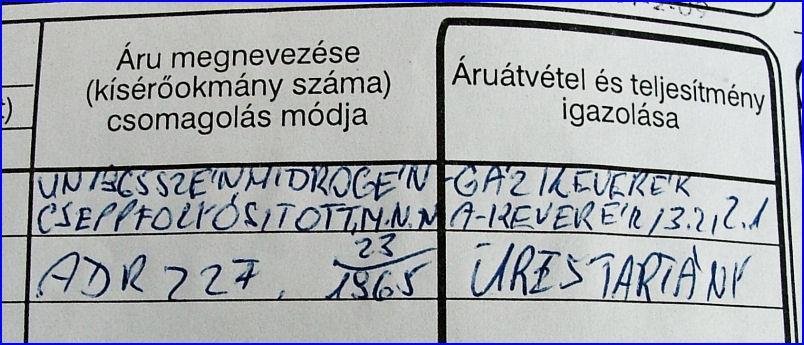 2-09
Áru megnevezése
(kísérőokmány száma)
csomagolás módja
Áruátvétel és teljesítmény
igazolása
SZÉNHIDROGÉN-GÁZKEVERÉK
CSEPPFOLYÓSÍTOTT, M.N.N A-KEVERÉK, 3.2, 2.1
ADR 227, 23/1965 ÜRES TARTÁNY